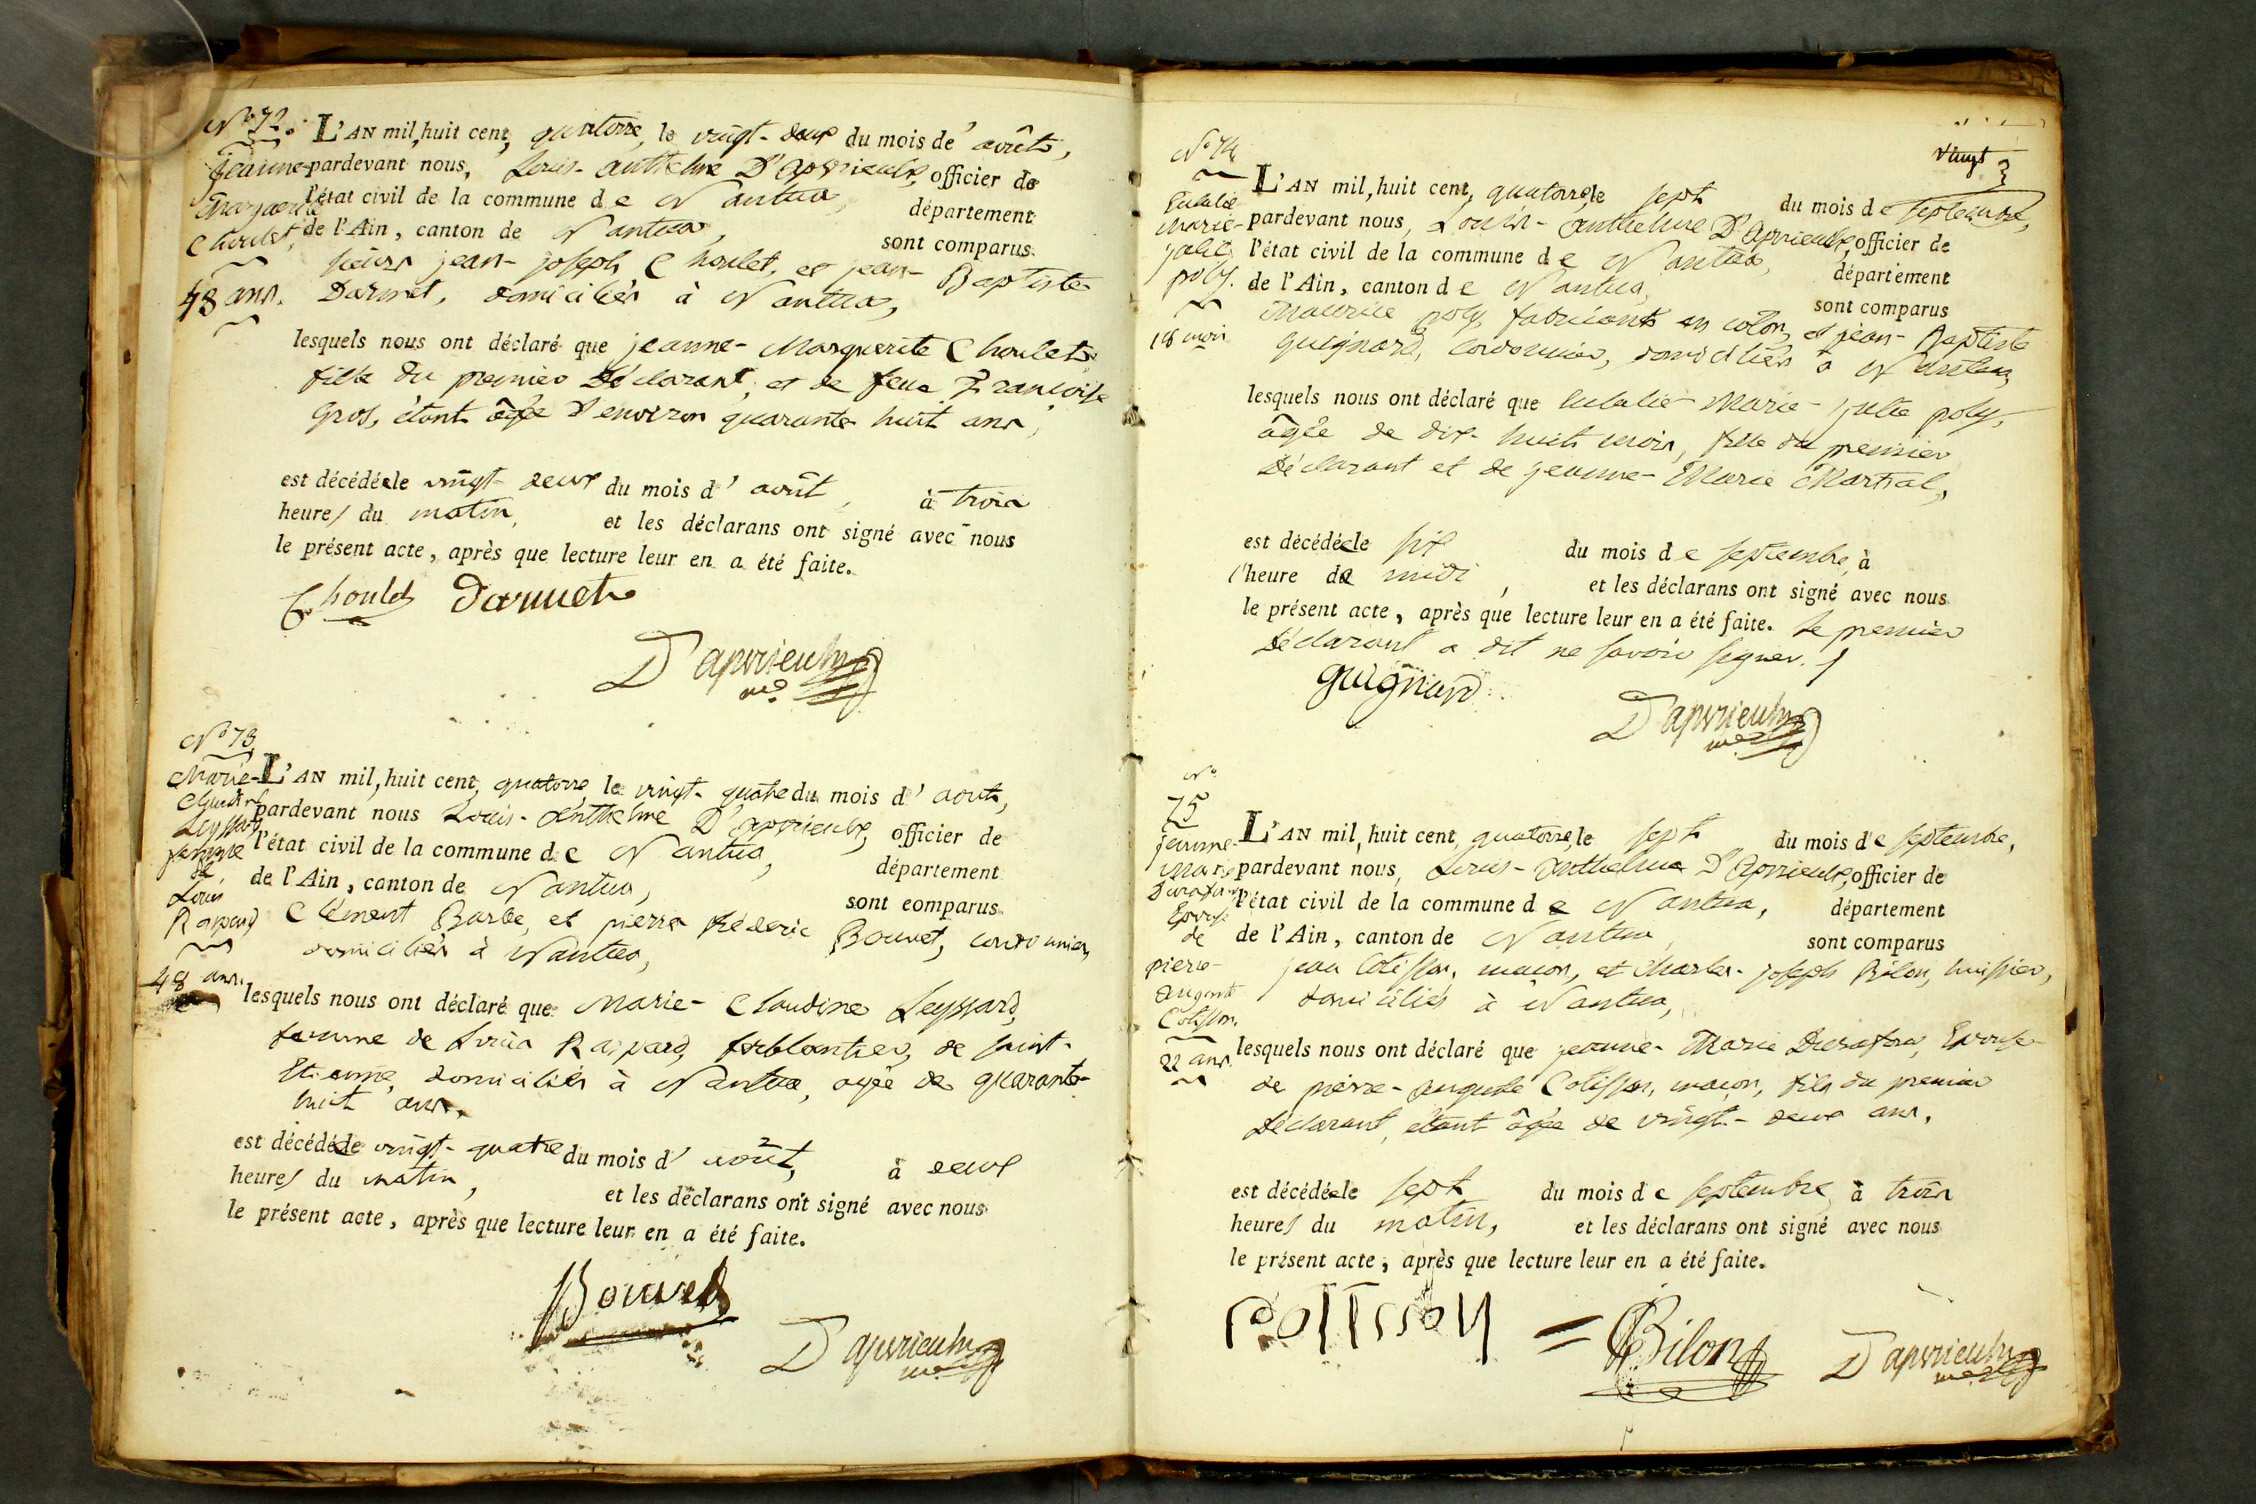 N° 72.
Jeanne
Marguerite
Choulet,
48 ans.
L'AN mil, huit cent, quatorze, le vingt-deux du mois de' aoûts,
pardevant nous, Louis-Anthelme D'apvrieulx, officier de
l'état civil de la commune de Nantua, département
de l'Ain, canton de Nantua, sont comparus
sieurs jean-joseph Choulet, et jean-Baptiste
Darmet, domiciliés à Nantua,
lesquels nous ont déclaré que jeanne-Marguerite Choulet,
fille du premier Déclarant, et de feue Françoise
Gros, étant âgée d'environ quarante huit ans,
est décédée le vingt-deux du mois d' août, à trois
heures du matin, et les déclarans ont signé avec nous
le présent acte, après que lecture leur en a été faite.
Choulet Darmet
D'apvrieulx
N° 73
Marie-
Claudine
Leyssard
femme
de
Louis
Raspard
48 ans.
L'AN mil, huit cent, quatorze le vingt-quatre du mois d' aouts,
pardevant nous Louis-Anthelme D'apvrieulx, officier de
l'état civil de la commune de Nantua, département
de l'Ain, canton de Nantua, sont comparus
Clément Barbe, et pierre fréderic Bouvet, cordonnier,
domiciliés à Nantua,
lesquels nous ont déclaré que Marie-Claudine Leyssard,
femme de Louis Raspard, ferblantier, de saint-
Etienne, domiciliés à Nantua, agée de quarante-
huit ans.
est décédée le vingt-quatre du mois d' août, à deux
heures du matin, et les déclarans ont signé avec nous
le présent acte, après que lecture leur en a été faite.
Bouvet
D'apvrieulx
vingt
N° 74
Eulalie
Marie-
Julie
poly.
18 mois
L'AN mil, huit cent, quatorze, le sept du mois de septembre,
pardevant nous, Louis-Anthelme D'apvrieulx, officier de
l'état civil de la commune de Nantua, département
de l'Ain, canton de Nantua, sont comparus
Maurice poly, fabricant en coton, et jean-Baptiste
Guignard, cordonnier, domiciliés à Nantua,
lesquels nous ont déclaré que Eulalie-Marie-Julie poly,
âgée de dix-huit mois, fille du premier
Déclarant et de jeanne-Marie Martial,
est décédée le six du mois de septembre, à
l'heure de midi, et les déclarans ont signé avec nous
le présent acte, après que lecture leur en a été faite. Le premier
Déclarant a dit ne savoir signer.
Guignard
D'apvrieulx
N°
75
jeanne-
Marie
Durafour
Epouse
de
pierre-
auguste
Cotisson.
22 ans.
L'AN mil, huit cent, quatorze, le sept du mois de septembre,
pardevant nous, Louis-Anthelme D'apvrieulx, officier de
l'état civil de la commune de Nantua, département
de l'Ain, canton de Nantua, sont comparus
jean Cotisson, maçon, et Charles-joseph Bilon, huissier,
domiciliés à Nantua,
lesquels nous ont déclaré que jeanne-Marie Durafour, Epouse
de pierre-auguste Cotisson, maçon, fils du premier
Déclarant, étant âgée de vingt-deux ans.
est décédée le sept du mois de septembre à trois
heures du matin, et les déclarans ont signé avec nous
le présent acte, après que lecture leur en a été faite.
Cotisson = Bilon D'apvrieulx